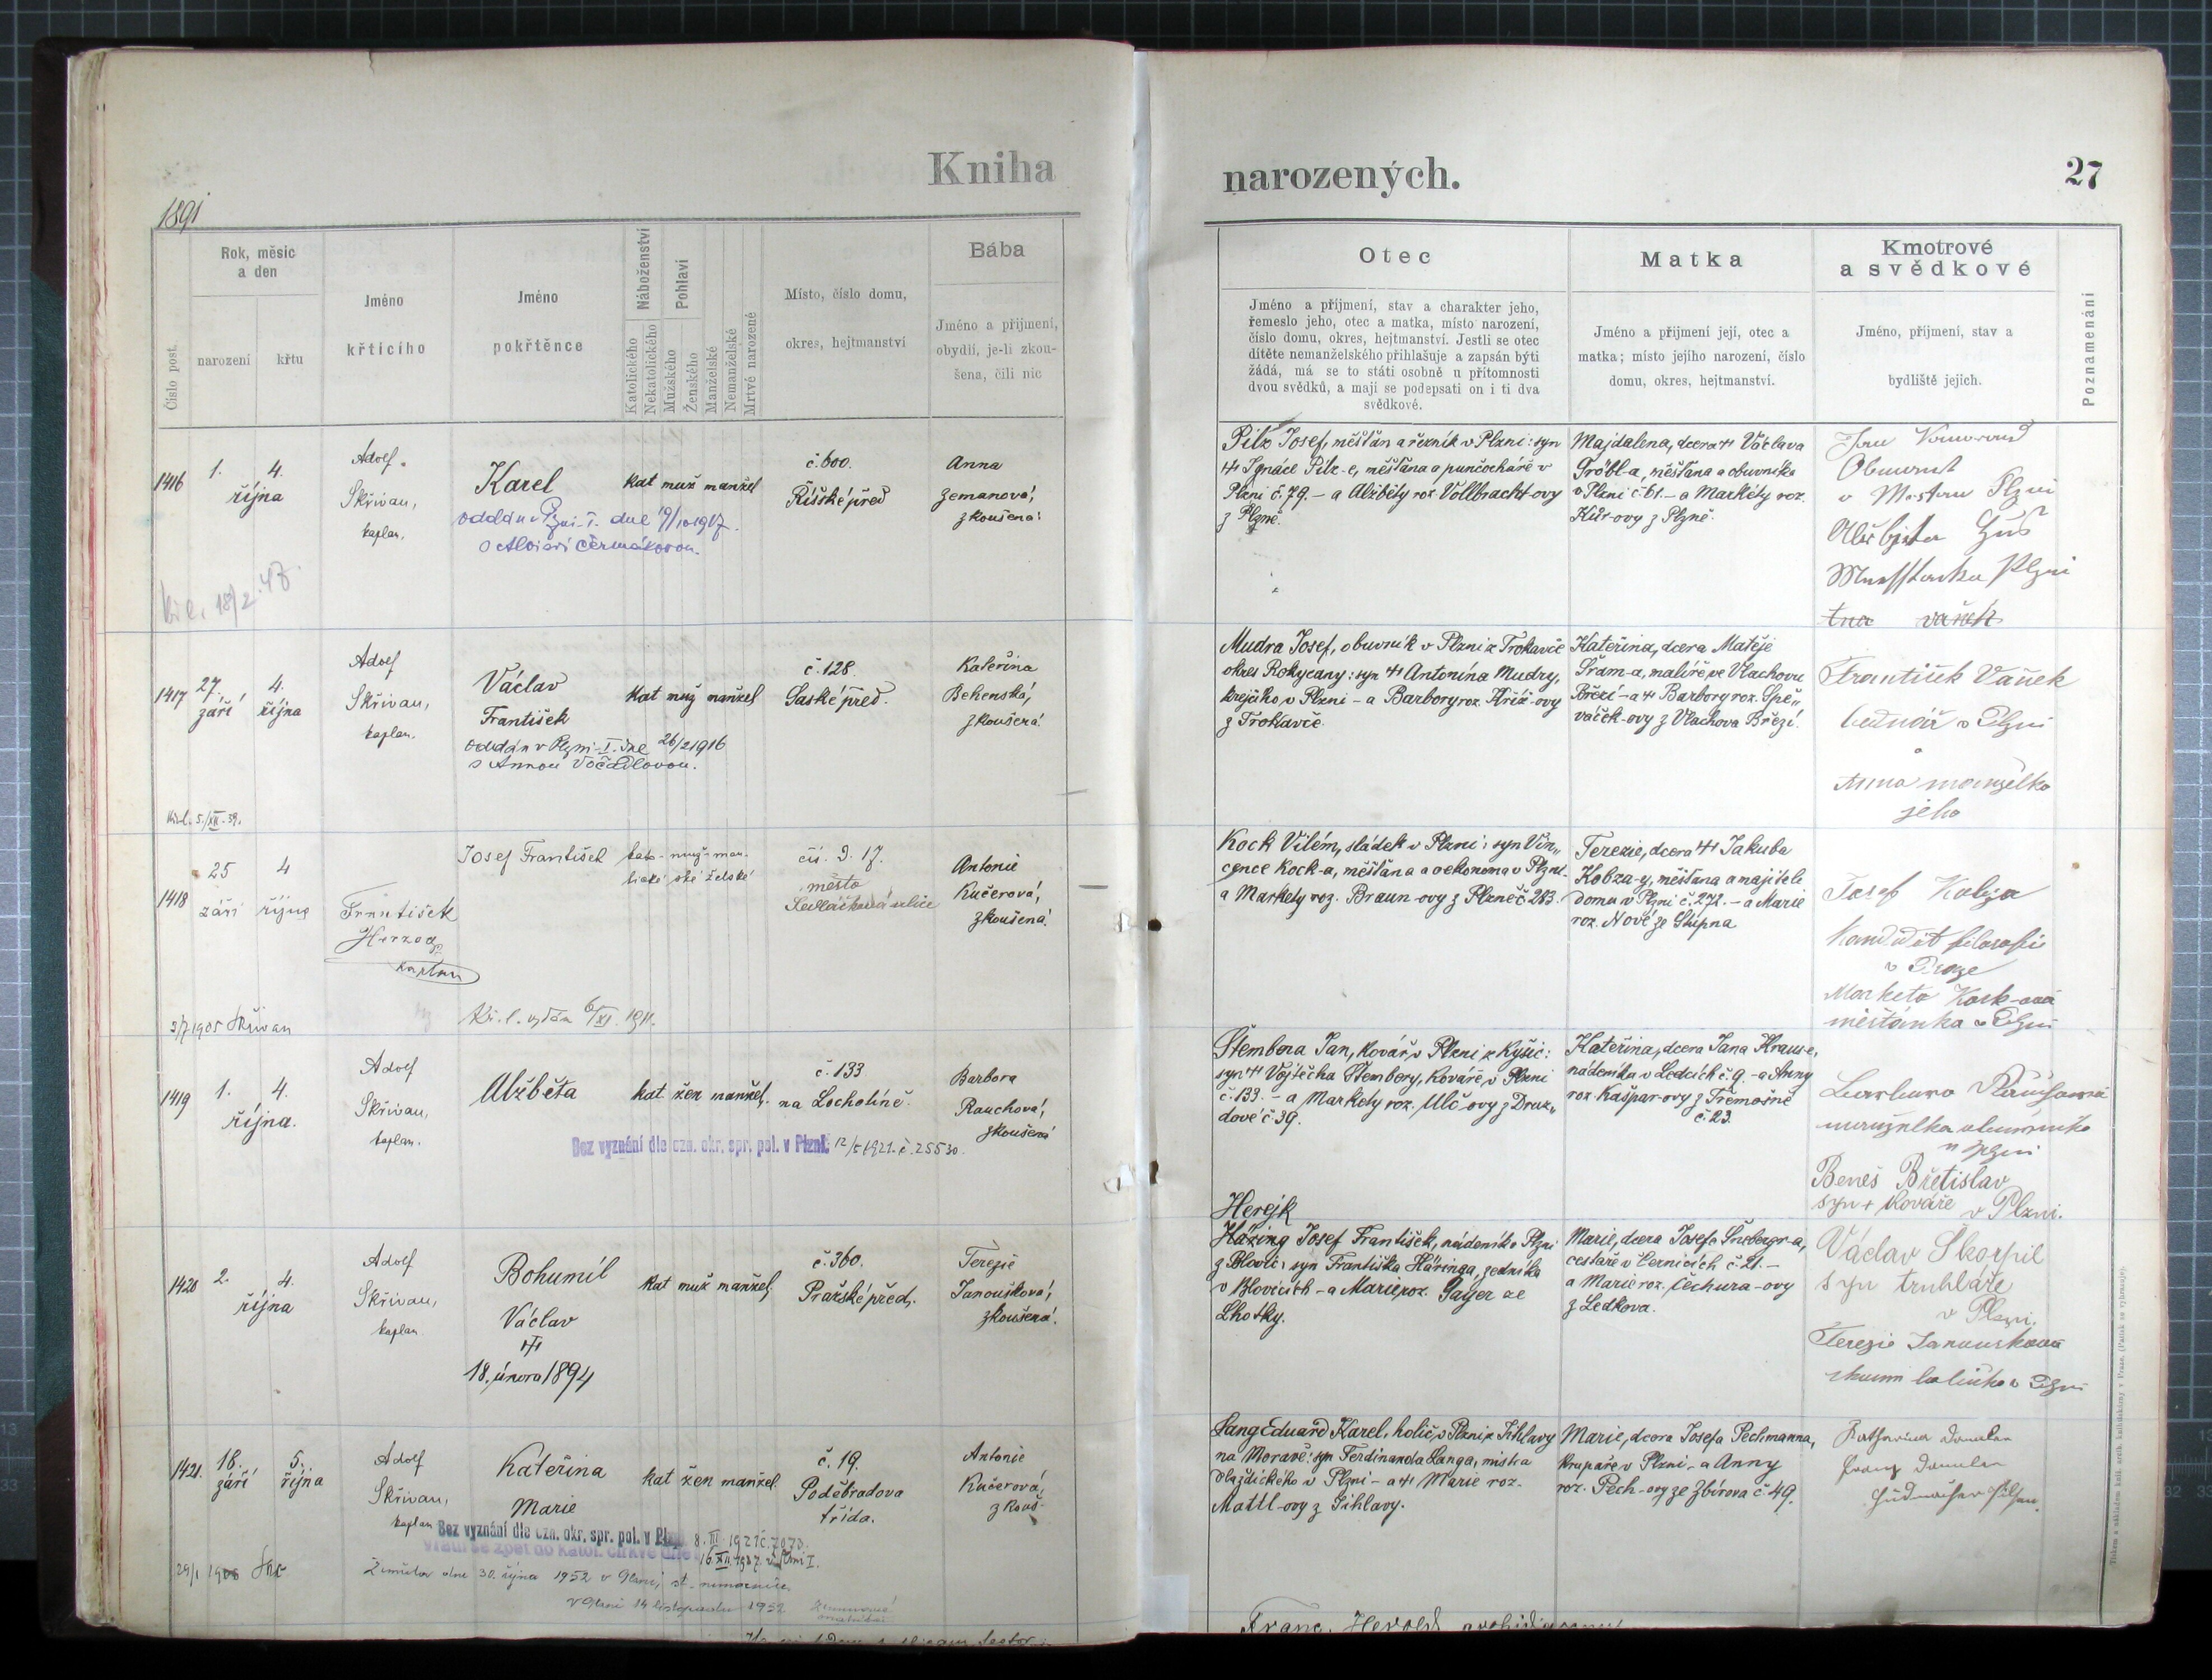 Kniha
narozených.
27
1891
Číslo post.
Rok, měsíc
a den
narození
křtu
Jméno
křticího
Jméno
pokřtěnce
Náboženství
Katolického
Nekatolického
Pohlaví
Mužského
Ženského
Manželské
Nemanželské
Mrtvě narozené
Místo, číslo domu,
okres, hejtmanství
Bába
Jméno a přijmení,
obydlí, je-li zkou-
šena, čili nic
Otec
Jméno a příjmení, stav a charakter jeho,
řemeslo jeho, otec a matka, místo narození,
číslo domu, okres, hejtmanství. Jestli se otec
dítěte nemanželského přihlašuje a zapsán býti
žádá, má se to státi osobně u přítomnosti
dvou svědků, a mají se podepsati on i ti dva
svědkové.
Matka
Jméno a přijmení její, otec a
matka; místo jejího narození, číslo
domu, okres, hejtmanství.
Kmotrové
a svědkové
Jméno, příjmení, stav a
bydliště jejich.
Poznamenání
1416
1. 4.
října
Adolf
Skřivan,
kaplan.
Karel
oddán v Plzni-I. dne 19/10 1917
s Aloisií Čermákovou.
kat muž manžel
č. 600.
Říšské před
Anna
Zemanová,
zkoušená.
Pilz Josef, měšťan a řezník v Plzni: syn
Ignáce Pilz-e, měšťana a punčocháře v
Plzni č. 79. - a Alžběty roz. Vollbracht-ovy
z Plzně.
Majdalena, dcera Václava
Gröbl-a, měšťana a obuvníka
v Plzni č. 61. - a Markéty roz.
Kür-ovy z Plzně.
v Plzni
Plzni
vaněk
kř. l. 18/2 47.
1417
27. 4.
září října
Adolf
Skřivan,
kaplan.
Václav
František
oddán v Plzni-I. dne 26/2 1916
s Annou Vočadlovou.
kat muž manžel
č. 128.
Saské před.
Kateřina
Behenská,
zkoušená.
Mudra Josef, obuvník v Plzni z Trokavče
okres Rokycany: syn Antonína Mudry,
krejčího v Plzni - a Barbory roz. Kříž-ovy
z Trokavče.
Kateřina, dcera Matěje
Šram-a, malíře ve Vlachovu
Březí - a Barbory roz. Spě„
váček-ovy z Vlachova Březí.
František Vaněk
bednář v Plzni
a
Anna manželka
jeho
Kř. l. 5./XII. 39.
1418
25 4
září října
František
Herzog
kaplan
Josef František
kato- muž- man-
lické ské želské
čís. d. 17.
město
Sedláčkova ulice
Antonie
Kučerová,
zkoušená.
Kock Vilém, sládek v Plzni: syn Vin„
cence Kock-a, měšťana a oekonoma v Plzni
a Markety roz. Braun-ovy z Plzně č. 283.
Terezie, dcera Jakuba
Kobza-y, měšťana a majitele
domu v Plzni č. 272. - a Marie
roz. Nové ze Stupna
Josef Kobza
kandidát filosofie
v Praze
Marketa Kock-ová
měšťanka v Plzni
3/7 1905 Skřivan
Kř. l. vydán 6/XI. 1911.
1419
1. 4.
října.
Adolf
Skřivan,
kaplan.
Alžběta
kat žen manžel.
č. 133
na Locholíně.
Barbora
Rauchová,
zkoušená
Bez vyznání dle ozn. okr. spr. pol. v Plzni. 12/5 1921. č. 25530.
Štembera Jan, kovář v Plzni z Kyšic:
syn Vojtěcha Štembery, kováře v Plzni
č. 133. - a Markety roz. Ulč-ovy z Druz„
dové č. 39.
Kateřina, dcera Jana Krause,
nádeníka v Ledcích č. 9. - a Anny
roz. Kašpar-ovy z Třemošné
č. 23.
Barbora Rauchová
v Plzni
Beneš Břetislav
syn † kováře v Plzni.
1420
2. 4.
října
Adolf
Skřivan,
kaplan.
Bohumil
Václav
18. února 1894
kat muž manžel.
č. 360.
Pražské před.
Terezie
Janoušková,
zkoušená.
Herejk
Häring Josef František, nádeník v Plzni
z Blovic: syn Františka Häringa, zedníka
v Blovicích - a Marie roz. Gayer ze
Lhotky.
Marie, dcera Josefa Šneberger-a,
cestáře v Černicích č. 21. -
a Marie roz. Čechura-ovy
z Ledkova.
Václav Škorpil
syn truhláře
v Plzni.
Terezie Janoušková
zkouš. babička v Plzni
1421.
18. 5.
září října
Adolf
Skřivan,
kaplan
Kateřina
Marie
kat žen manžel.
č. 19.
Poděbradova
třída.
Antonie
Kučerová,
zkouš-
Bez vyznání dle ozn. okr. spr. pol. v Plzni 8. III. 1921 č. 7070.
Vrátil se zpět do katol. církve dne 16 XII. 1937. v Plzni I.
Zemřela dne 30. října 1952 v Plzni, st. nemocnice.
V Plzni 14 listopadu 1952
Lang Eduard Karel, holič v Plzni z Jihlavy
na Moravě: syn Ferdinanda Langa, mistra
dlaždického v Plzni - a Marie roz.
Mattl-ovy z Jihlavy.
Marie, dcera Josefa Pechmanna,
krupaře v Plzni - a Anny
roz. Pech-ovy ze Zbirova č. 49.
Katharina
Franz
Pilsen.
Franc. Herold